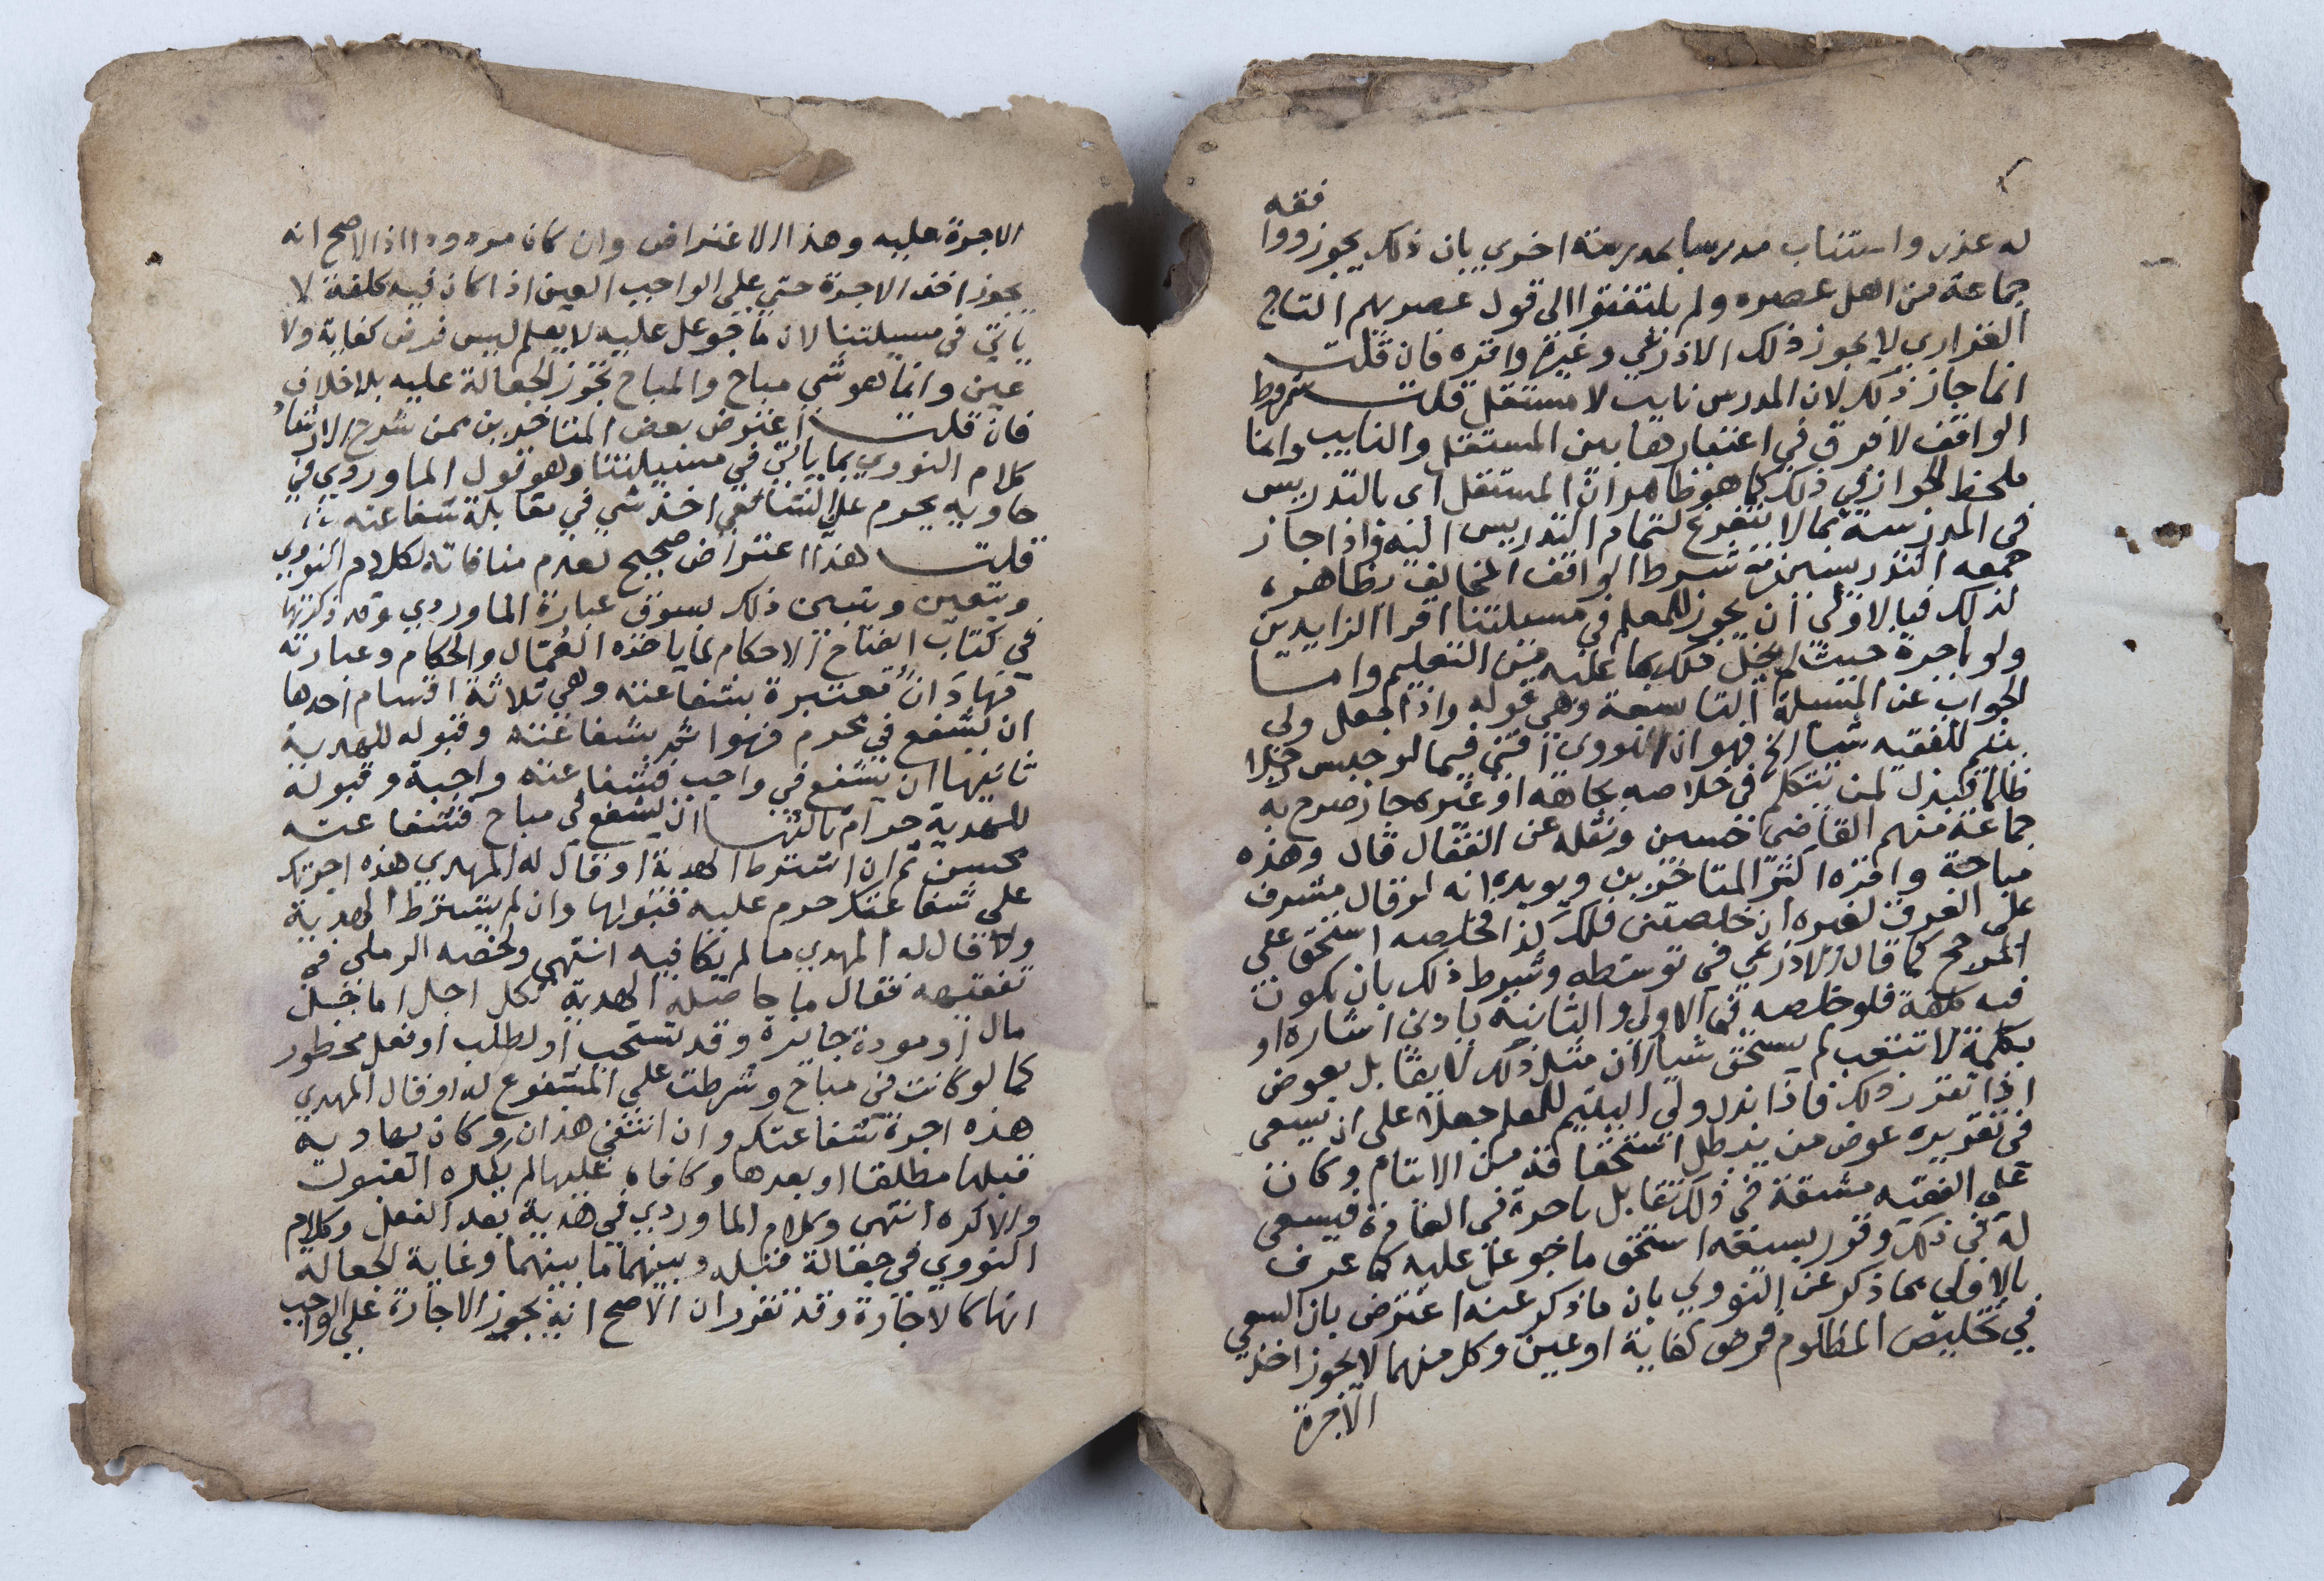 له عذر واستناب مدرسا بمدرسة اخري بان ذلك يجوز ووا
فقه
جماعة من اهل عصره ولم يلتفتوا الى قول عصريهم التاج
الفزاري لا يجوز ذلك الاذرعي وغيره واقره فان قلت
انما جاز ذلك لان المدرس نايب لا مستقل قلت شروط
الواقف لا فرق في اعتبارها بين المستقل والنايب وانما
ملحظ الجواز في ذلك كما هو ظاهر ان المستقل اى بالتدريس
في المدرسة بما لا يتفرغ لتمام التدريس اليه واذا جاز
جمعه التدريسين مع شرط الواقف المخالف بظاهره
لذلك فبالاولى ان يجوز للمعلم في مسيلتنا اقرا الزايدين
ولو باجرة حيث لم يخل ذلك بما عليه من التعليم واما
الجواب عن المسيلة التاسعة وهي قوله واذا جعل ولي
يتيم للفقيه شيا الخ فهو ان النووى افتى فيما لو حبس رجلا
ظالم فبذل لمن يتكلم في خلاصه بجاهه او غيره جاز صرح به
جماعة منهم القاضي حسين ونقله عن القفال قال وهذه
مباحة واقره اكثر المتاخرين ويويده انه لو قال مشرف
على الغرق لغيره ان خلصتنى فلك كذا فخلصه استحق على
المرجح كما قال الاذرعي في توسطه وشرط ذلك بان يكون
فيه كلفة فلو خلصه في الاولى والثانية بادنى اشاره او
بكلمة لا تتعب لم يستحق شيا لان مثل ذلك لا يقابل بعوض
اذا تقرر ذلك فاذا بذل ولي اليتيم للمعلم جعلا على ان يسعى
في تقريره عوض من بطل استحقاقه من الايتام وكان
على الفقيه مشقة في ذلك تقابل باجرة في العادة فيسعى
له في ذلك وقرر بسعيه استحق ما جوعل عليه كما عرف
بالاولى مما ذكر عن النووي بان ما ذكر عنه اعترض بان السعي
في تخليص المظلوم فرض كفاية او عين وكل منهما لا يجوز اخذ
الاجرة
الاجرة عليه وهذا الاعتراض وان كان مردودا اذ الاصح انه
يجوز اخذ الاجرة حتى على الواجب العين اذا كان فيه كلفة لا
ياتي في مسيلتنا لان ما جوعل عليه لا يعلم ليس فرض كفاية ولا
عين وانما هو شي مباح والمباح تجوز الجعالة عليه بلا خلاف
فان قلت اعترض بعض المتاخرين ممن شرح الارشاد
كلام النووي بما ياتي في مسيلتنا وهو قول الماوردي في
حاويه يحرم على الشافعي اخذ شي في مقابلة شفاعته
قلت هذا اعتراض صحيح لعدم منافاته لكلام النووي
ويتعين ويتبين ذلك بسوق عبارة الماوردي وقد ذكرتها
في كتاب ايضاح الاحكام لما ياخذه العمال والحكام وعبارته
فهاد ان معتبرة بشفاعته وهي ثلاثة اقسام احدها
ان يشفع في محرم فهو اثم بشفاعته وقبوله للهدية
ثانيها ان يشفع في واجب فشفاعته واجبة وقبوله
للهدية حرام ثالثها ان يشفع في مباح فشفاعته
محسن ثم ان اشترط الهدية او قال له المهدي هذه اجرتك
على شفاعتك حرم عليه قبولها وان لم يشترط الهدية
ولا قال له المهدي ما لم يكافيه انتهى ولخصه الرملي في
تفقيهه فقال ما حاصله الهدية لكل اجل اما خيل
مال او مودة جايزة وقد تستحب او لطلب او فعل محظور
كما لو كانت في مباح وشرطت على المشفوع له او قال المهدي
هذه اجرة شفاعتك وان انتفى هذان وكان يهاديه
قبلها مطلقا او بعدها وكافاه عليها لم يكره القبول
والا كره انتهى وكلام الماوردي في هدية بعد الفعل وكلام
النووي في جعالة قبله وبينهما ما بينهما وغاية الجعالة
انها كالاجارة وقد تقرر ان الاصح انه تجوز الاجارة على الواجب